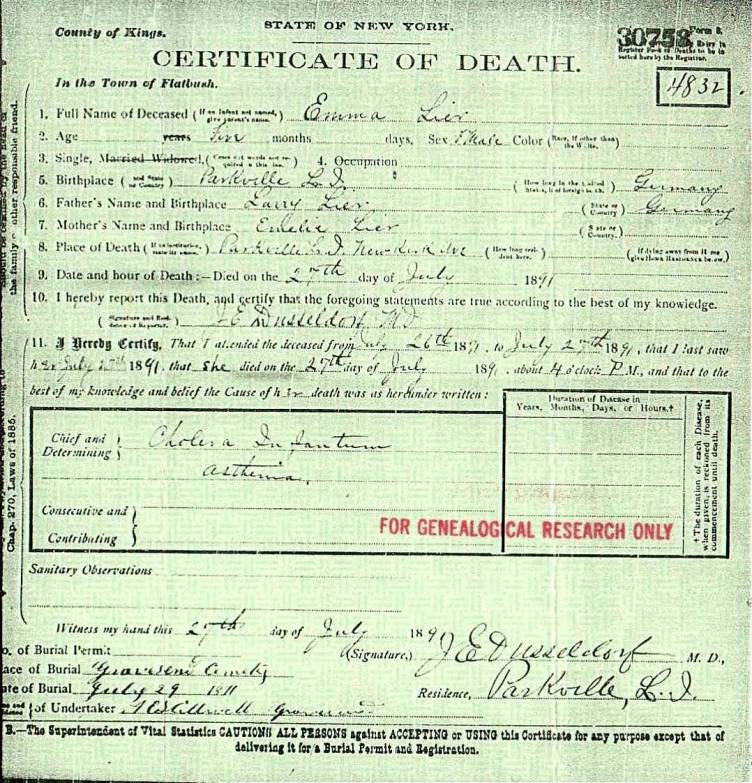 STATE OF NEW YORK.
County of Kings.
30758
Form 8.
CERTIFICATE OF DEATH.
4832
In the Town of Flatbush.
1. Full Name of Deceased (If an infant not named, give parent's name.) Emma Lier
2. Age years five months days, Sex Color (Race, if other than the White.)
3. Single, Married Widowed, 4. Occupation
5. Birthplace (and State or Country) Parkville L.I. (How long in the United States, if of foreign birth.) Germany
6. Father's Name and Birthplace Larry Lier (State or Country) Germany
7. Mother's Name and Birthplace Emelie Lier (State or Country.)
8. Place of Death (If an institution, state its name.) Parkville L.I. New Kirk Ave (How long resident here.) (If dying away from home give Home Residence below.)
9. Date and hour of Death:—Died on the 27th day of July 1891
10. I hereby report this Death, and certify that the foregoing statements are true according to the best of my knowledge.
(Signature and Residence of Reporter.) J E Dusseldorf MD
11. I Hereby Certify, That I attended the deceased from July 26th 1891, to July 27th 1891, that I last saw
her July 27th 1891, that she died on the 27th day of July 189 , about 4 o'clock P.M., and that to the
best of my knowledge and belief the Cause of her death was as hereunder written:
Duration of Disease in
Years, Months, Days, or Hours.†
Chief and
Determining
Cholera Infantum
Asthenia.
Consecutive and
Contributing
FOR GENEALOGICAL RESEARCH ONLY
† The duration of each Disease, when given, is reckoned from its commencement until death.
Sanitary Observations
Witness my hand this 27th day of July 1891
o. of Burial Permit
(Signature,) J E Dusseldorf M. D.,
ace of Burial Gravesend Cemetery
ate of Burial July 29 18
Residence, Parkville, L.I.
of Undertaker Stillwell Gravesend
B.—The Superintendent of Vital Statistics CAUTIONS ALL PERSONS against ACCEPTING or USING this Certificate for any purpose except that of
delivering it for a Burial Permit and Registration.
the family or other responsible friend.
Chap. 270, Laws of 1885.